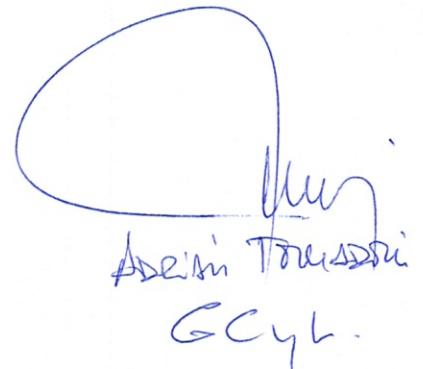 ADRIÁN TOMADONI
GCyL.